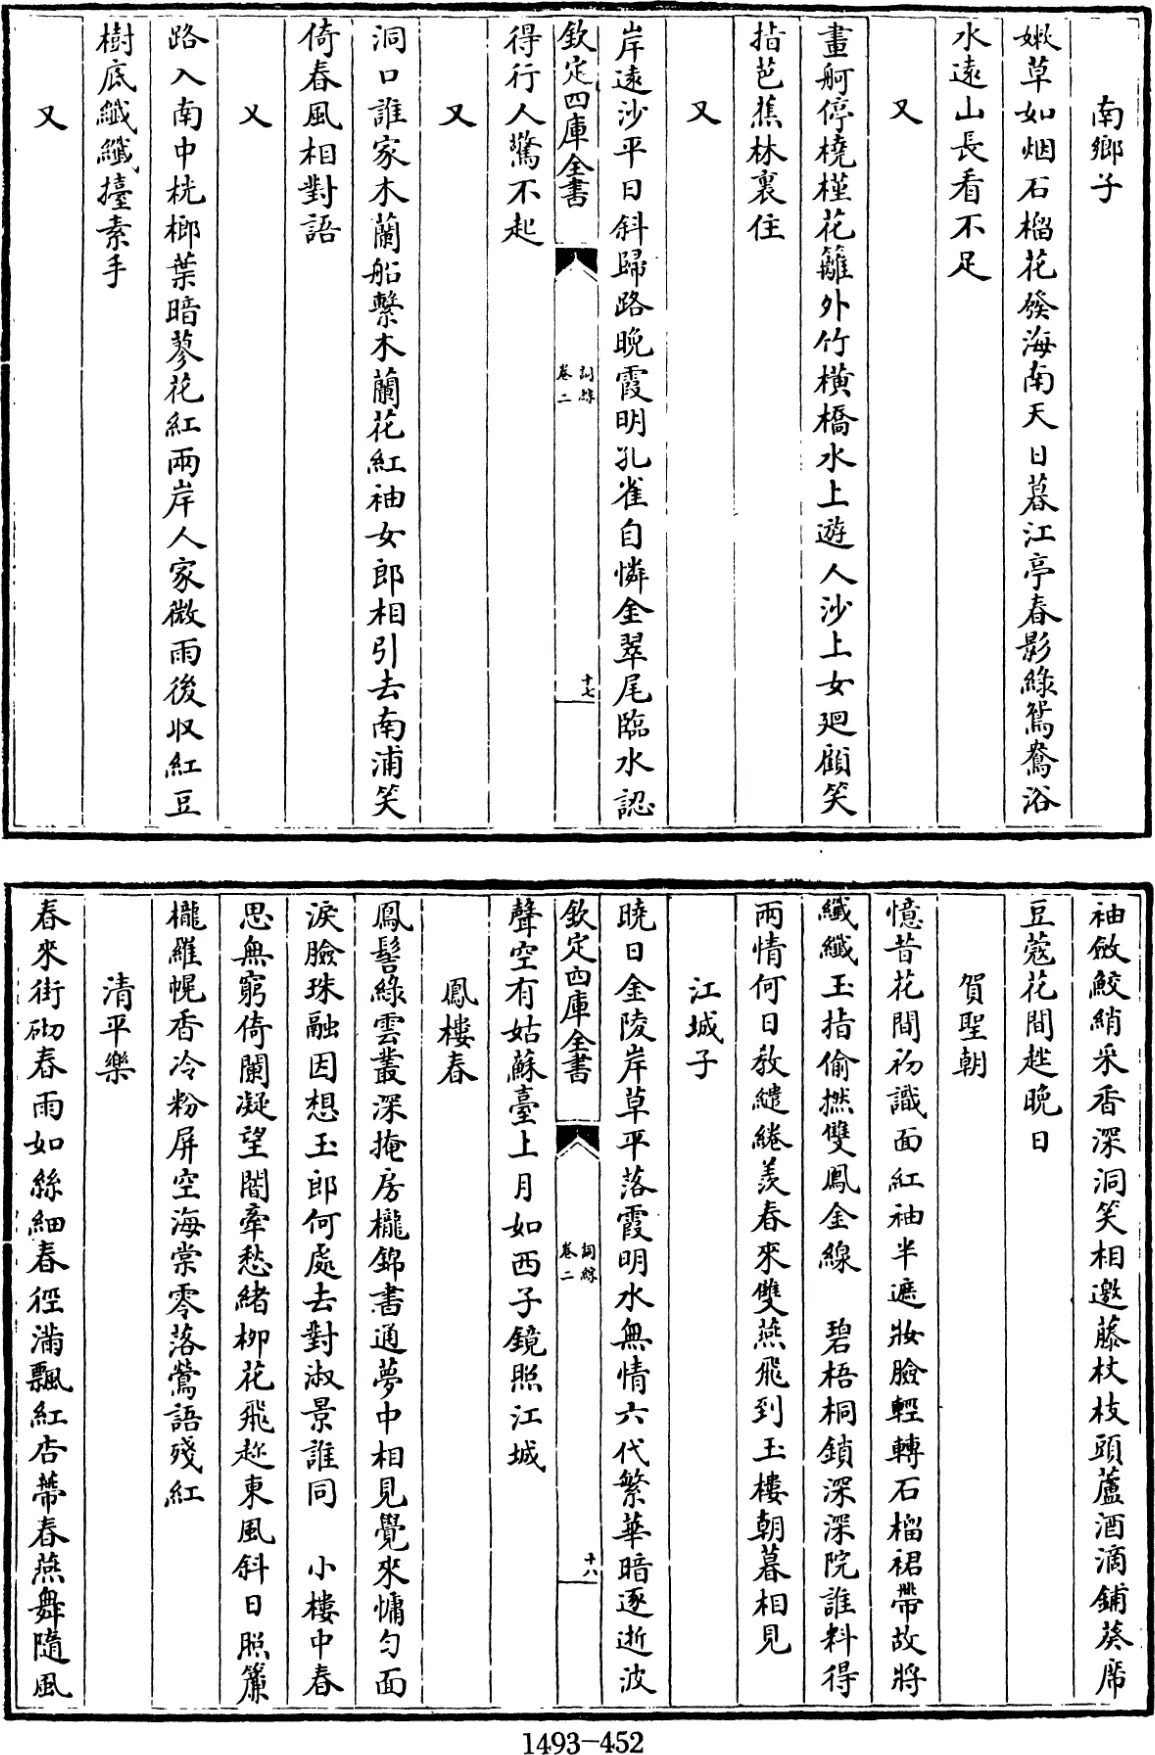 南鄉子
嫩草如烟石榴花發海南天日暮江亭春影綠鴛鴦浴
水遠山長看不足
又
畫舸停橈槿花籬外竹橫橋水上遊人沙上女廻顧笑
指芭蕉林裏住
又
岸遠沙平日斜歸路晚霞明孔雀自憐金翠尾臨水認
欽定四庫全書
詞綜
卷二
十七
得行人驚不起
又
洞口誰家木蘭船繫木蘭花紅袖女郎相引去南浦笑
倚春風相對語
又
路入南中桄榔葉暗蓼花紅兩岸人家微雨後収紅豆
樹底纖纖擡素手
又
袖斂鮫綃采香深洞笑相邀藤杖枝頭蘆酒滴鋪葵席
豆蔻花間趖晚日
賀聖朝
憶昔花間初識面紅袖半遮妝臉輕轉石榴裙帶故將
纖纖玉指偷撚雙鳳金線　碧梧桐鎖深深院誰料得
兩情何日教繾綣羨春來雙燕飛到玉樓朝暮相見
江城子
曉日金陵岸草平落霞明水無情六代繁華暗逐逝波
欽定四庫全書
詞綜
卷二
十八
聲空有姑蘇臺上月如西子鏡照江城
鳳樓春
鳳髻綠雲叢深掩房櫳錦書通夢中相見覺來慵勻面
淚臉珠融因想玉郎何處去對淑景誰同　小樓中春
思無窮倚闌凝望闇牽愁緒柳花飛趂東風斜日照簾
櫳羅幌香冷粉屏空海棠零落鶯語殘紅
清平樂
春來街砌春雨如絲細春徑滿飄紅杏蒂春燕舞隨風
1493-452